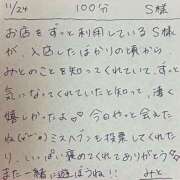 11/24 100分 S様
お店をずっと利用しているS様
が、入店したばかりの頃から
みとのことを知ってくれていて、ずっと
気になってくれていたと知って、凄く
嬉しかったよ 今日やっと会えた
ね ミスヘブンも投票してくれた
り、いっぱい褒めてくれてありがとう
また一緒に遊ぼうね!! みと